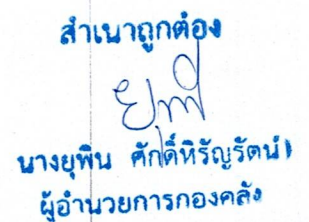 สำเนาถูกต้อง
นางยุพิน ศักดิ์หิรัญรัตน์)
ผู้อำนวยการกองคลัง